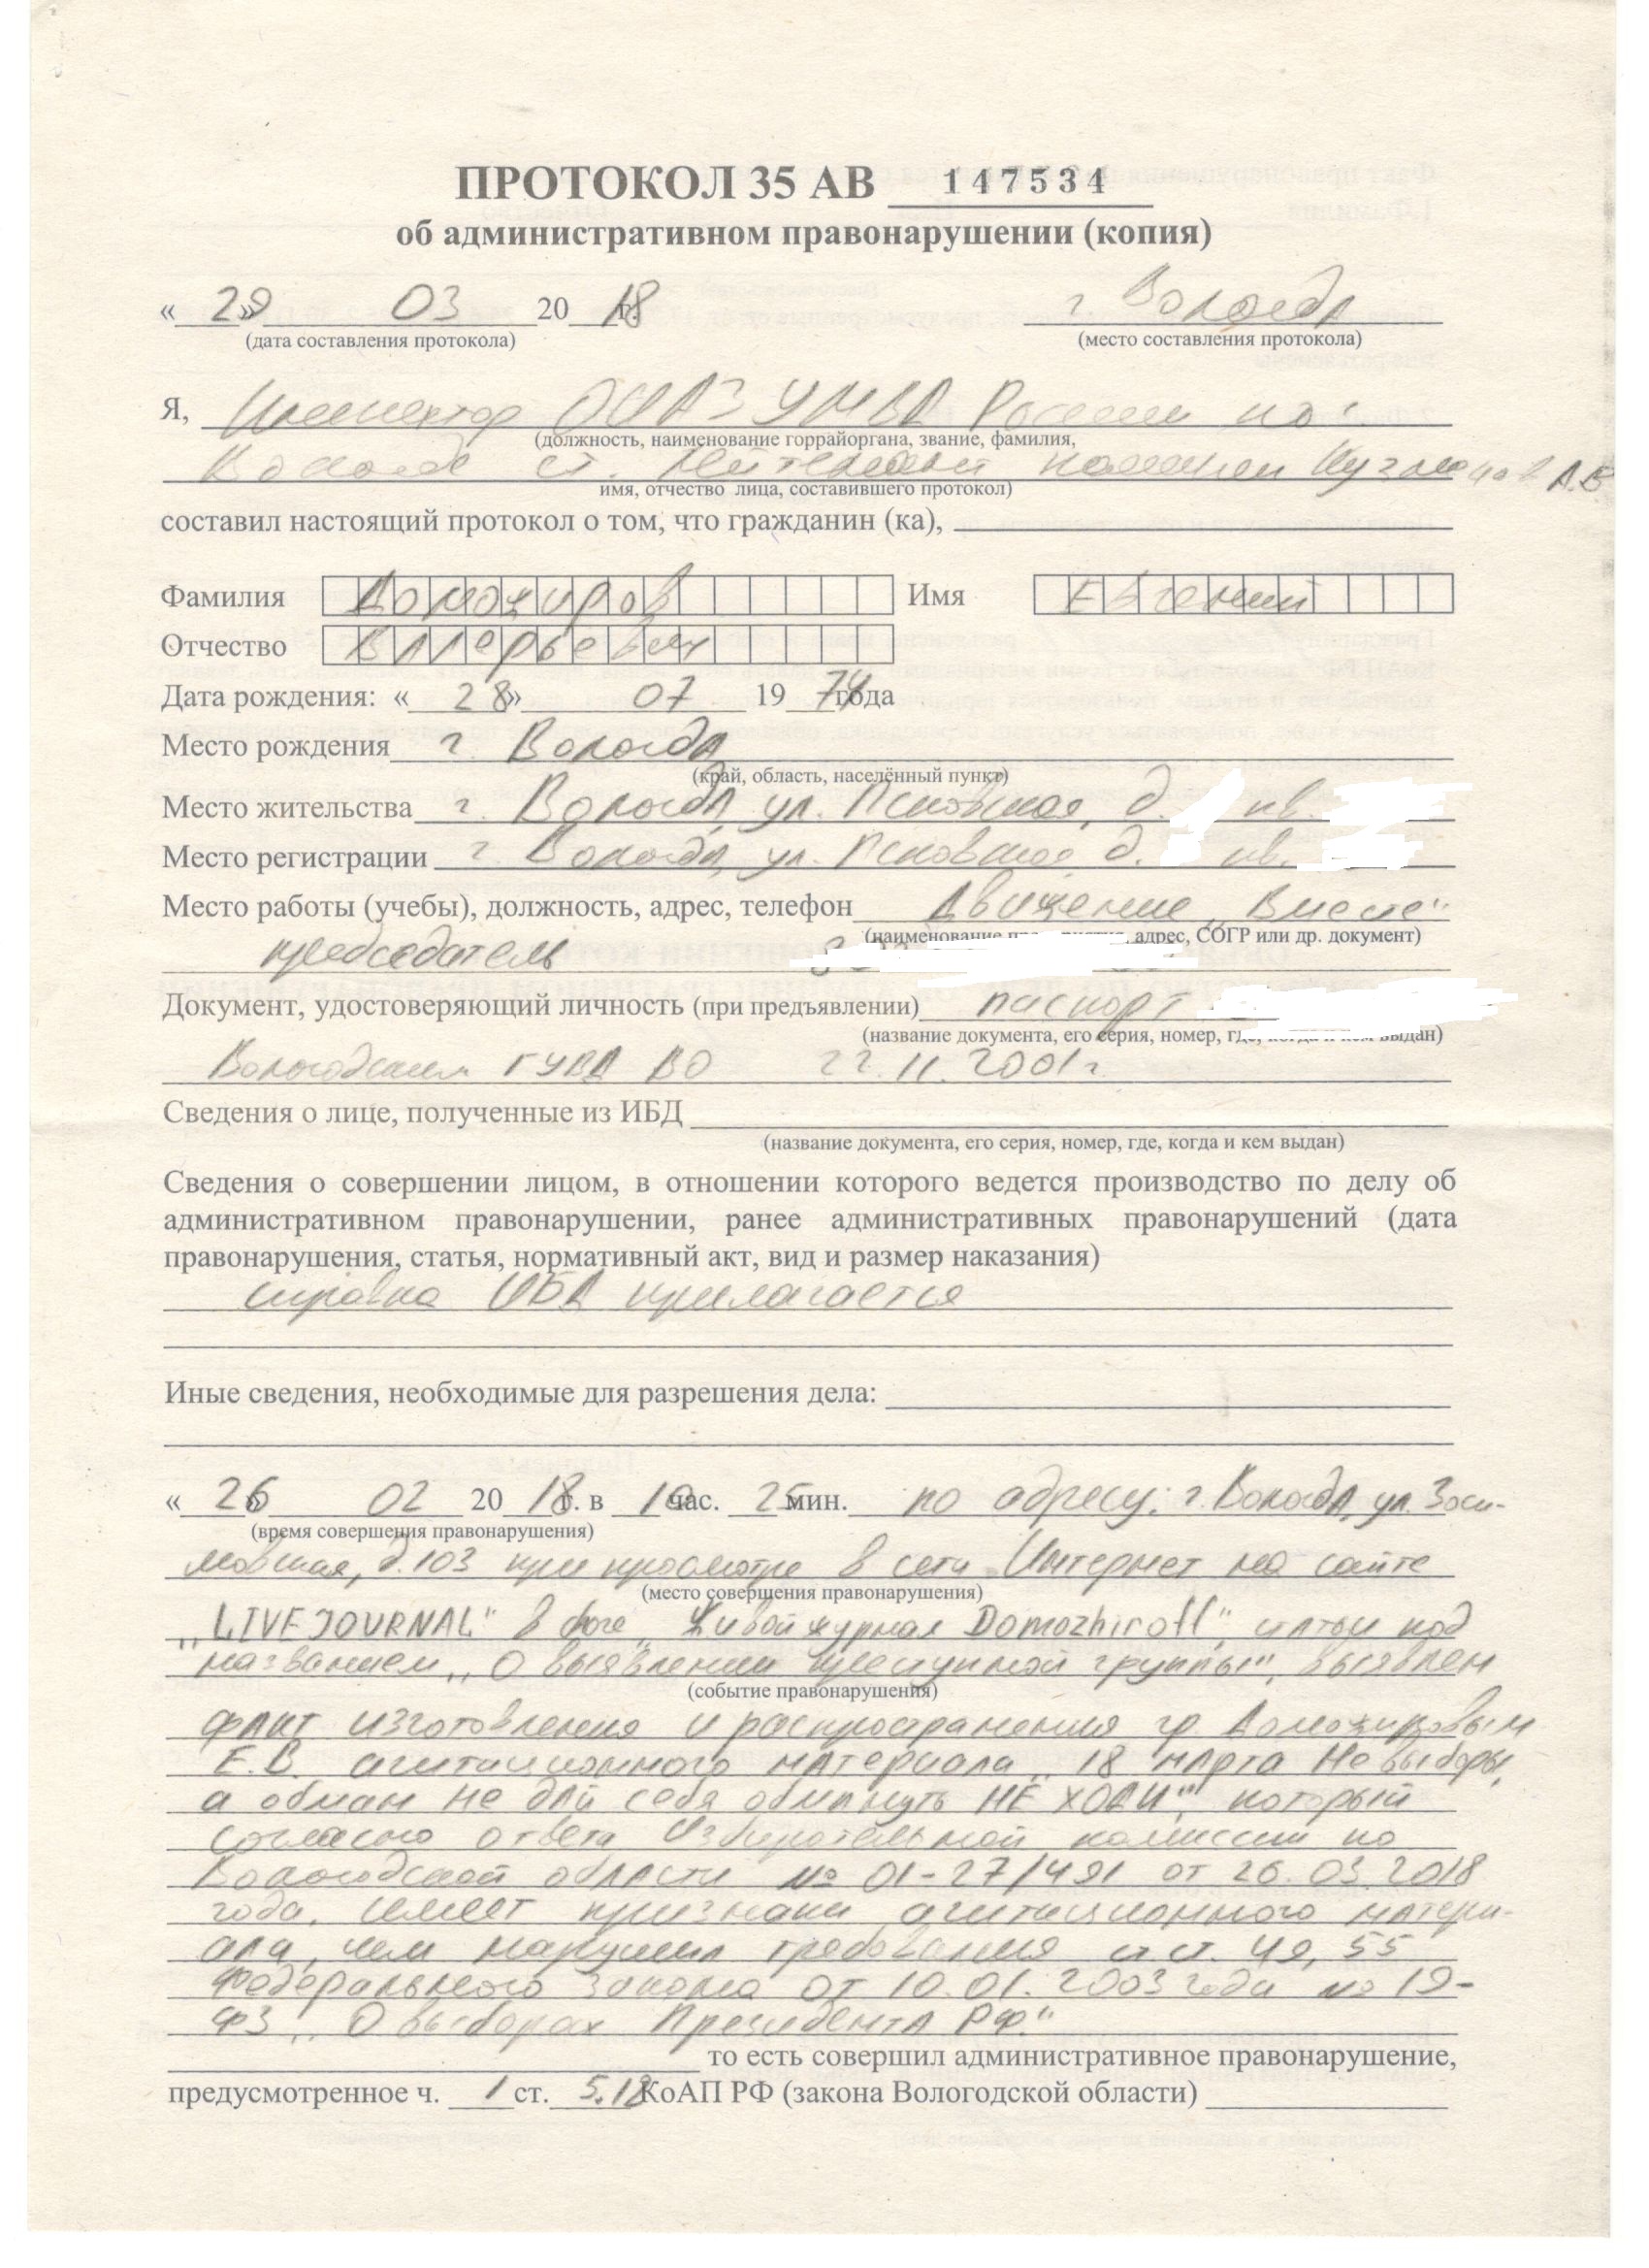 ПРОТОКОЛ 35 АВ 147534
об административном правонарушении (копия)
« 29 » 03 20 18 г. г Вологда
(дата составления протокола) (место составления протокола)
Я, Инспектор ОИАЗ УМВД России по г.
(должность, наименование горрайоргана, звание, фамилия,
Вологде ст. лейтенант полиции А.В
имя, отчество лица, составившего протокол)
составил настоящий протокол о том, что гражданин (ка),
Фамилия Доможиров Имя Евгений
Отчество Валерьевич
Дата рождения: « 28 » 07 19 74 года
Место рождения г. Вологда
(край, область, населённый пункт)
Место жительства г. Вологда, ул. Псковская, д. кв.
Место регистрации г. Вологда, ул. Псковская д. кв.
Место работы (учебы), должность, адрес, телефон Движение „Вместе"
(наименование адрес, СОГР или др. документ)
председатель
Документ, удостоверяющий личность (при предъявлении) паспорт
(название документа, его серия, номер, где, когда и кем выдан)
Вологодским ГУВД ВО 22.11.2001г.
Сведения о лице, полученные из ИБД
(название документа, его серия, номер, где, когда и кем выдан)
Сведения о совершении лицом, в отношении которого ведется производство по делу об
административном правонарушении, ранее административных правонарушений (дата
правонарушения, статья, нормативный акт, вид и размер наказания)
справка ИБД прилагается
Иные сведения, необходимые для разрешения дела:
« 26 » 02 20 18 г. в час. 25 мин. по адресу: г. Вологда, ул. Зоси-
(время совершения правонарушения)
мовская, д.103 при просмотре в сети Интернет на сайте
(место совершения правонарушения)
„LIVEJOURNAL" в блоге „Живой журнал Domozhiroff", статьи под
названием „О выявлении преступной группы", выявлен
(событие правонарушения)
факт изготовления и распространения гр. Доможировым
Е.В. агитационного материала „18 марта Не выборы,
а обман не дай себя обмануть НЕ ХОДИ", который
согласно ответа Избирательной комиссии по
Вологодской области № 01-27/491 от 26.03.2018
года, имеет признаки агитационного матери-
ала, чем нарушил требования ст.ст. 49, 55
Федерального закона от 10.01.2003 года № 19-
ФЗ „О выборах Президента РФ"
то есть совершил административное правонарушение,
предусмотренное ч. 1 ст. 5.12 КоАП РФ (закона Вологодской области)